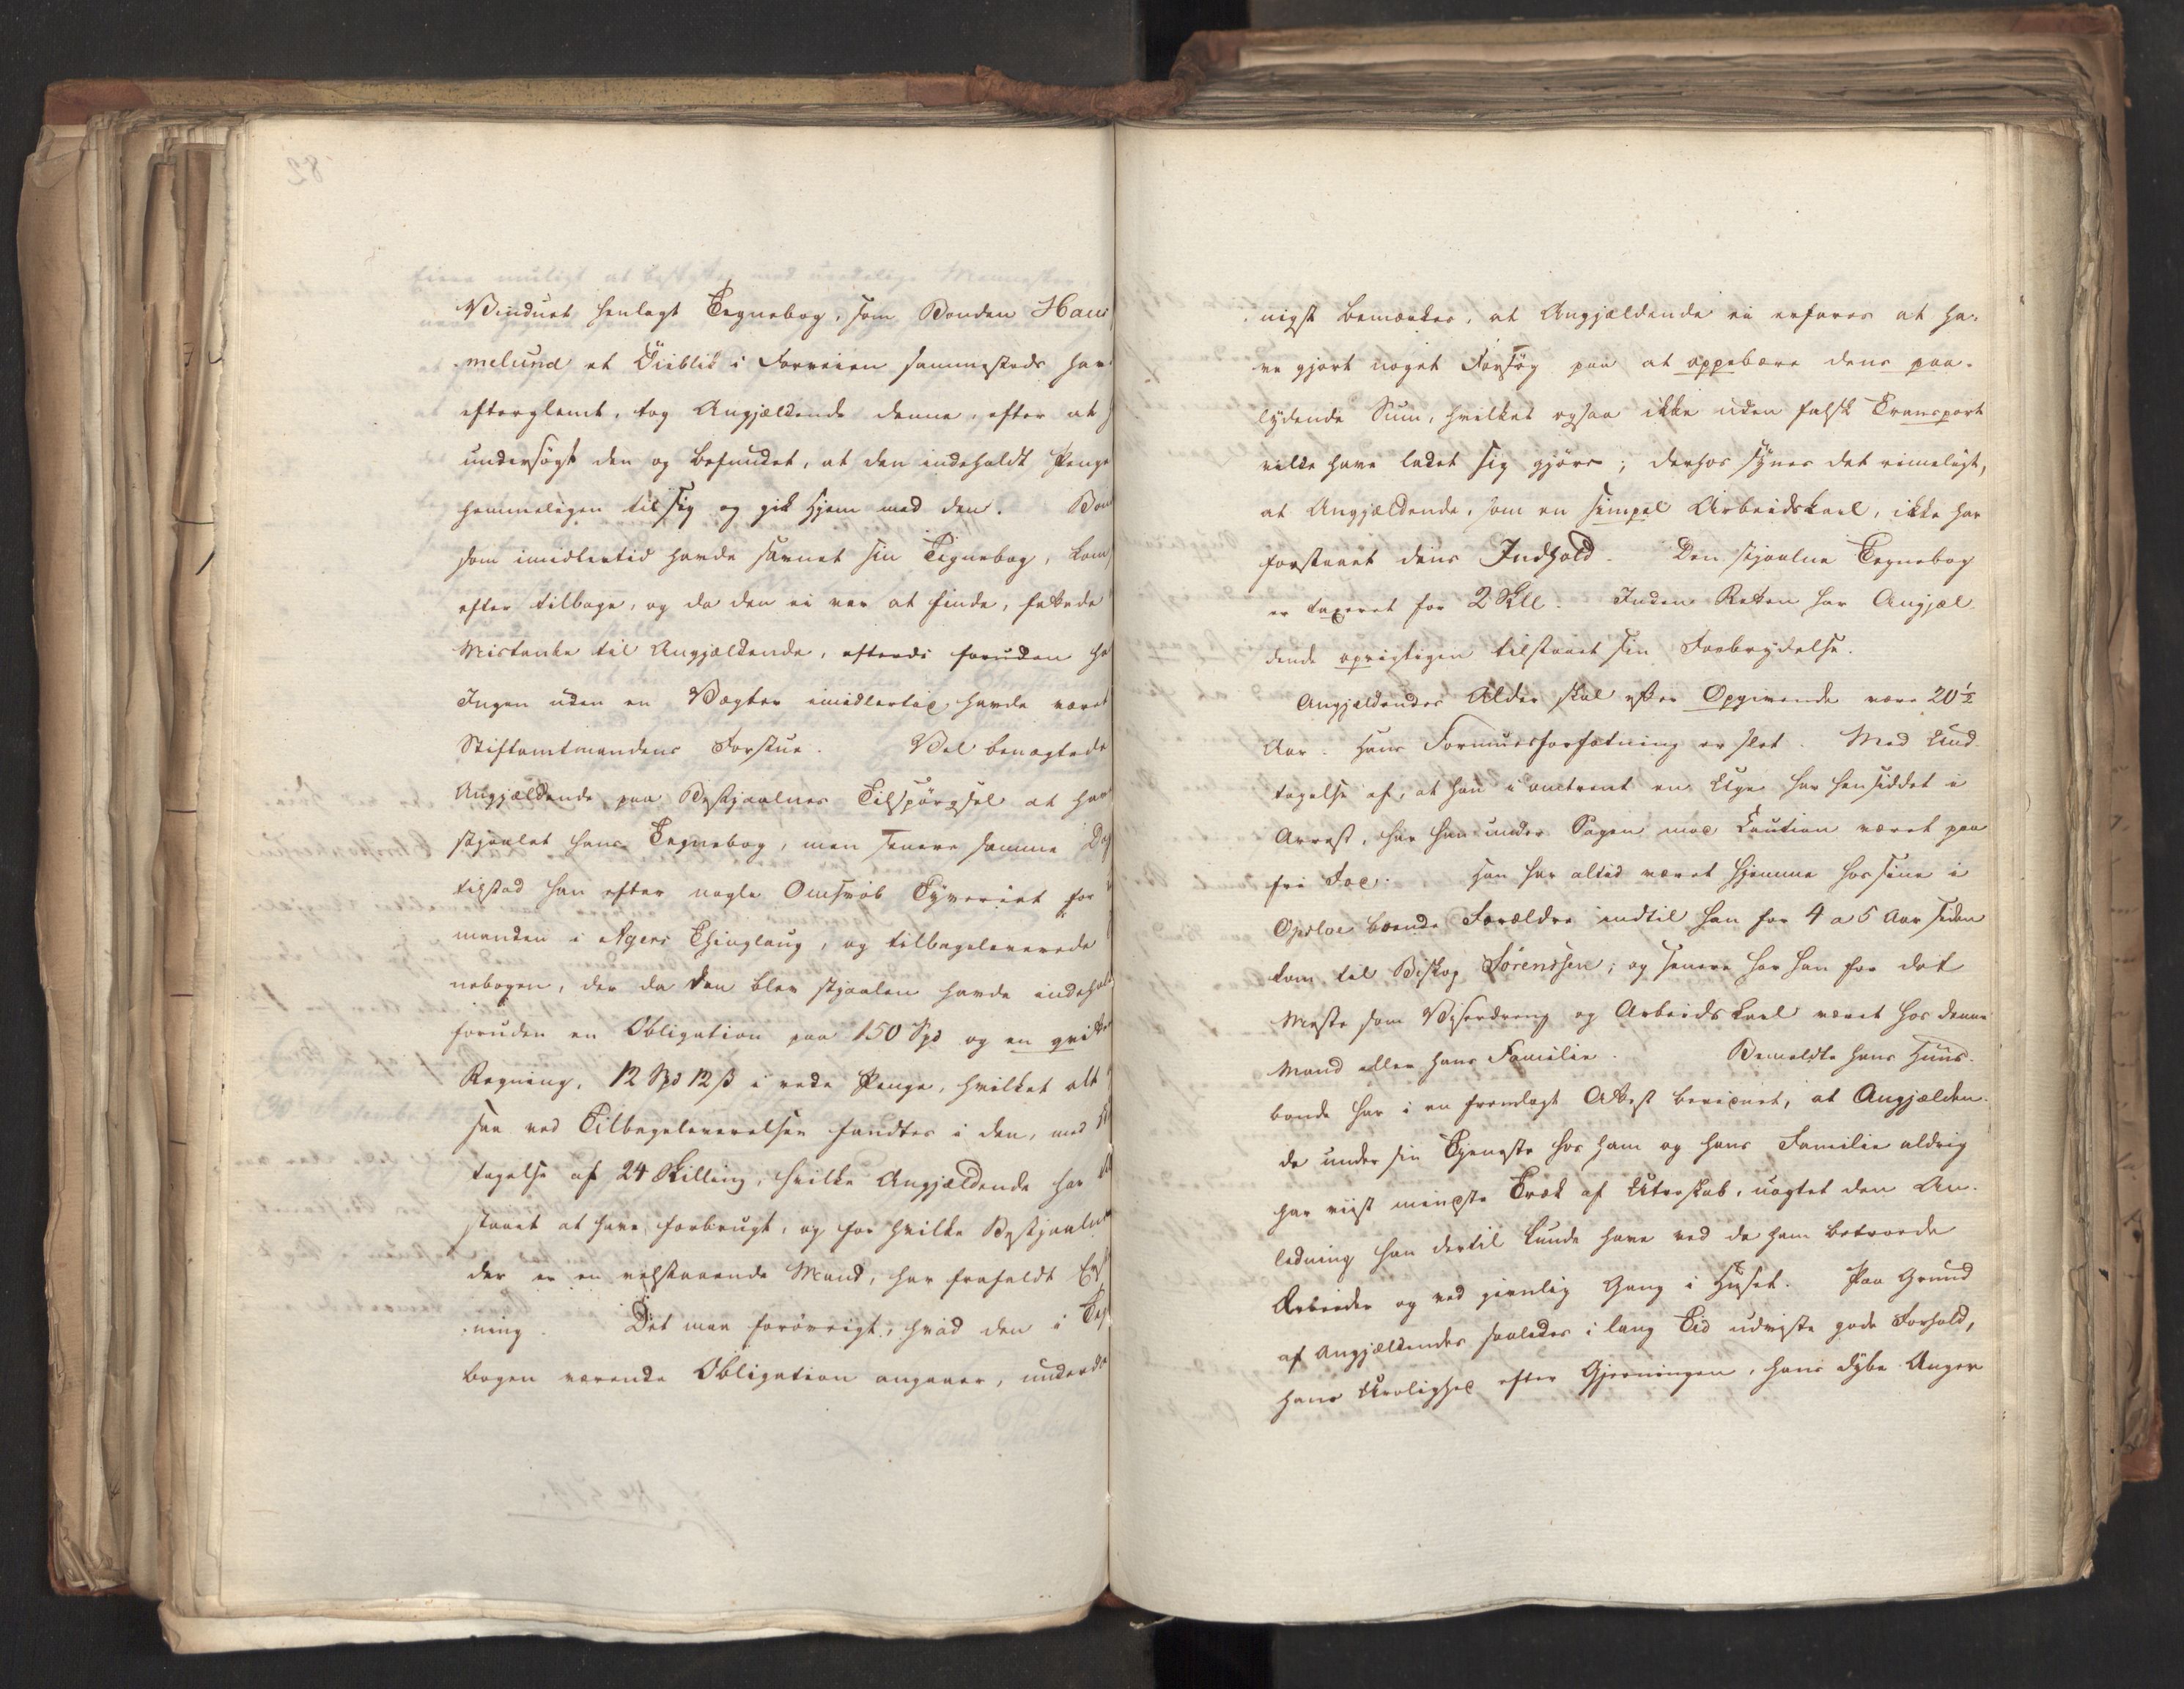 Vinduet henlagt Tegnebog, som Bonden Ham
melund et Öieblik i Forveien sammesteds hav
efterglemt, tog Angjældende denne, efter at h
undersögt den og befundet, at den indeholdt Penge
hemmeligen til sig og gik hjem med den. Bond
som imidlertid havde savnet sin Tegnebog, kom
efter tilbage, og da den ei var at finde, fattede
Mistanke til Angjældende, efterdi foruden ha
Ingen uden en Vægter imidlertid havde været
Stiftamtmandens Forstue. Vel benægtede
Angjældende paa Bestjaalnes Tilspörgsel at hav
stjaalet hans Tegnebog, men senere samme Dag
tilstod han efter nogle Omsvöb Tyveriet for
manden i Agers Thinglaug, og tilbageleverede
nebogen, der da den blev stjaalen havde indehol
foruden en Obligation paa 150 Spd og en qvitte
Regning, 12 Spd 12 ß i rede Penge, hvilket alt
saa ved Tilbageleverelsen fandtes i den, med
tagelse af 24 Skilling, hvilke Angjældende har
staaet at have forbrugt, og for hvilke Bestjaalne
der er en velstaaende Mand, har frafaldt Erst
ning. Det maa forövrigt, hvad den i Teg
bogen værende Obligation angaaer, underda
82
nigst bemærkes, at Angjældende ei erfares at ha-
ve gjort noget Forsög paa at oppebære dens paa-
lydende Sum, hvilket ogsaa ikke uden falsk Transport
vilde have ladet sig gjöre; derhos synes det rimeligt,
at Angjældende, som en simpel Arbeidskarl, ikke har
forstaaet dens Indhold. Den stjaalne Tegnebog
er taxeret for 2 Skll. Inden Retten har Angjæl
dende oprigtigen tilstaaet sin Forbrydelse.
Angjældendes Alder skal efter Opgivende være 20½
Aar. Hans Formuesforfatning er slet. Med Und-
tagelse af, at han i omtrent en Uge har hensiddet i
Arrest, har han under Sagen mod Caution været paa
fri Fod. Han har altid været hjemme hos sine i
Opsloe boende Forældre indtil han for 4 a 5 Aar siden
kom til Biskop Sörenssen; og senere har han for det
Meste som Viserdreng og Arbeidskarl været hos denne
Mand eller hans Familie. Bemeldte hans Huus-
bonde har i en fremlagt Attest bevidnet, at Angjælden-
de under sin Tjeneste hos ham og hans Familie aldrig
har viist mindste Træk af Utroskab, uagtet den An-
ledning han dertil kunde have ved de ham betroede
Arbeider og ved jevnlig Gang i Huset. Paa Grund
af Angjældendes saaledes i lang Tid udviste gode Forhold,
hans Urolighed efter Gjerningen, hans dybe Anger